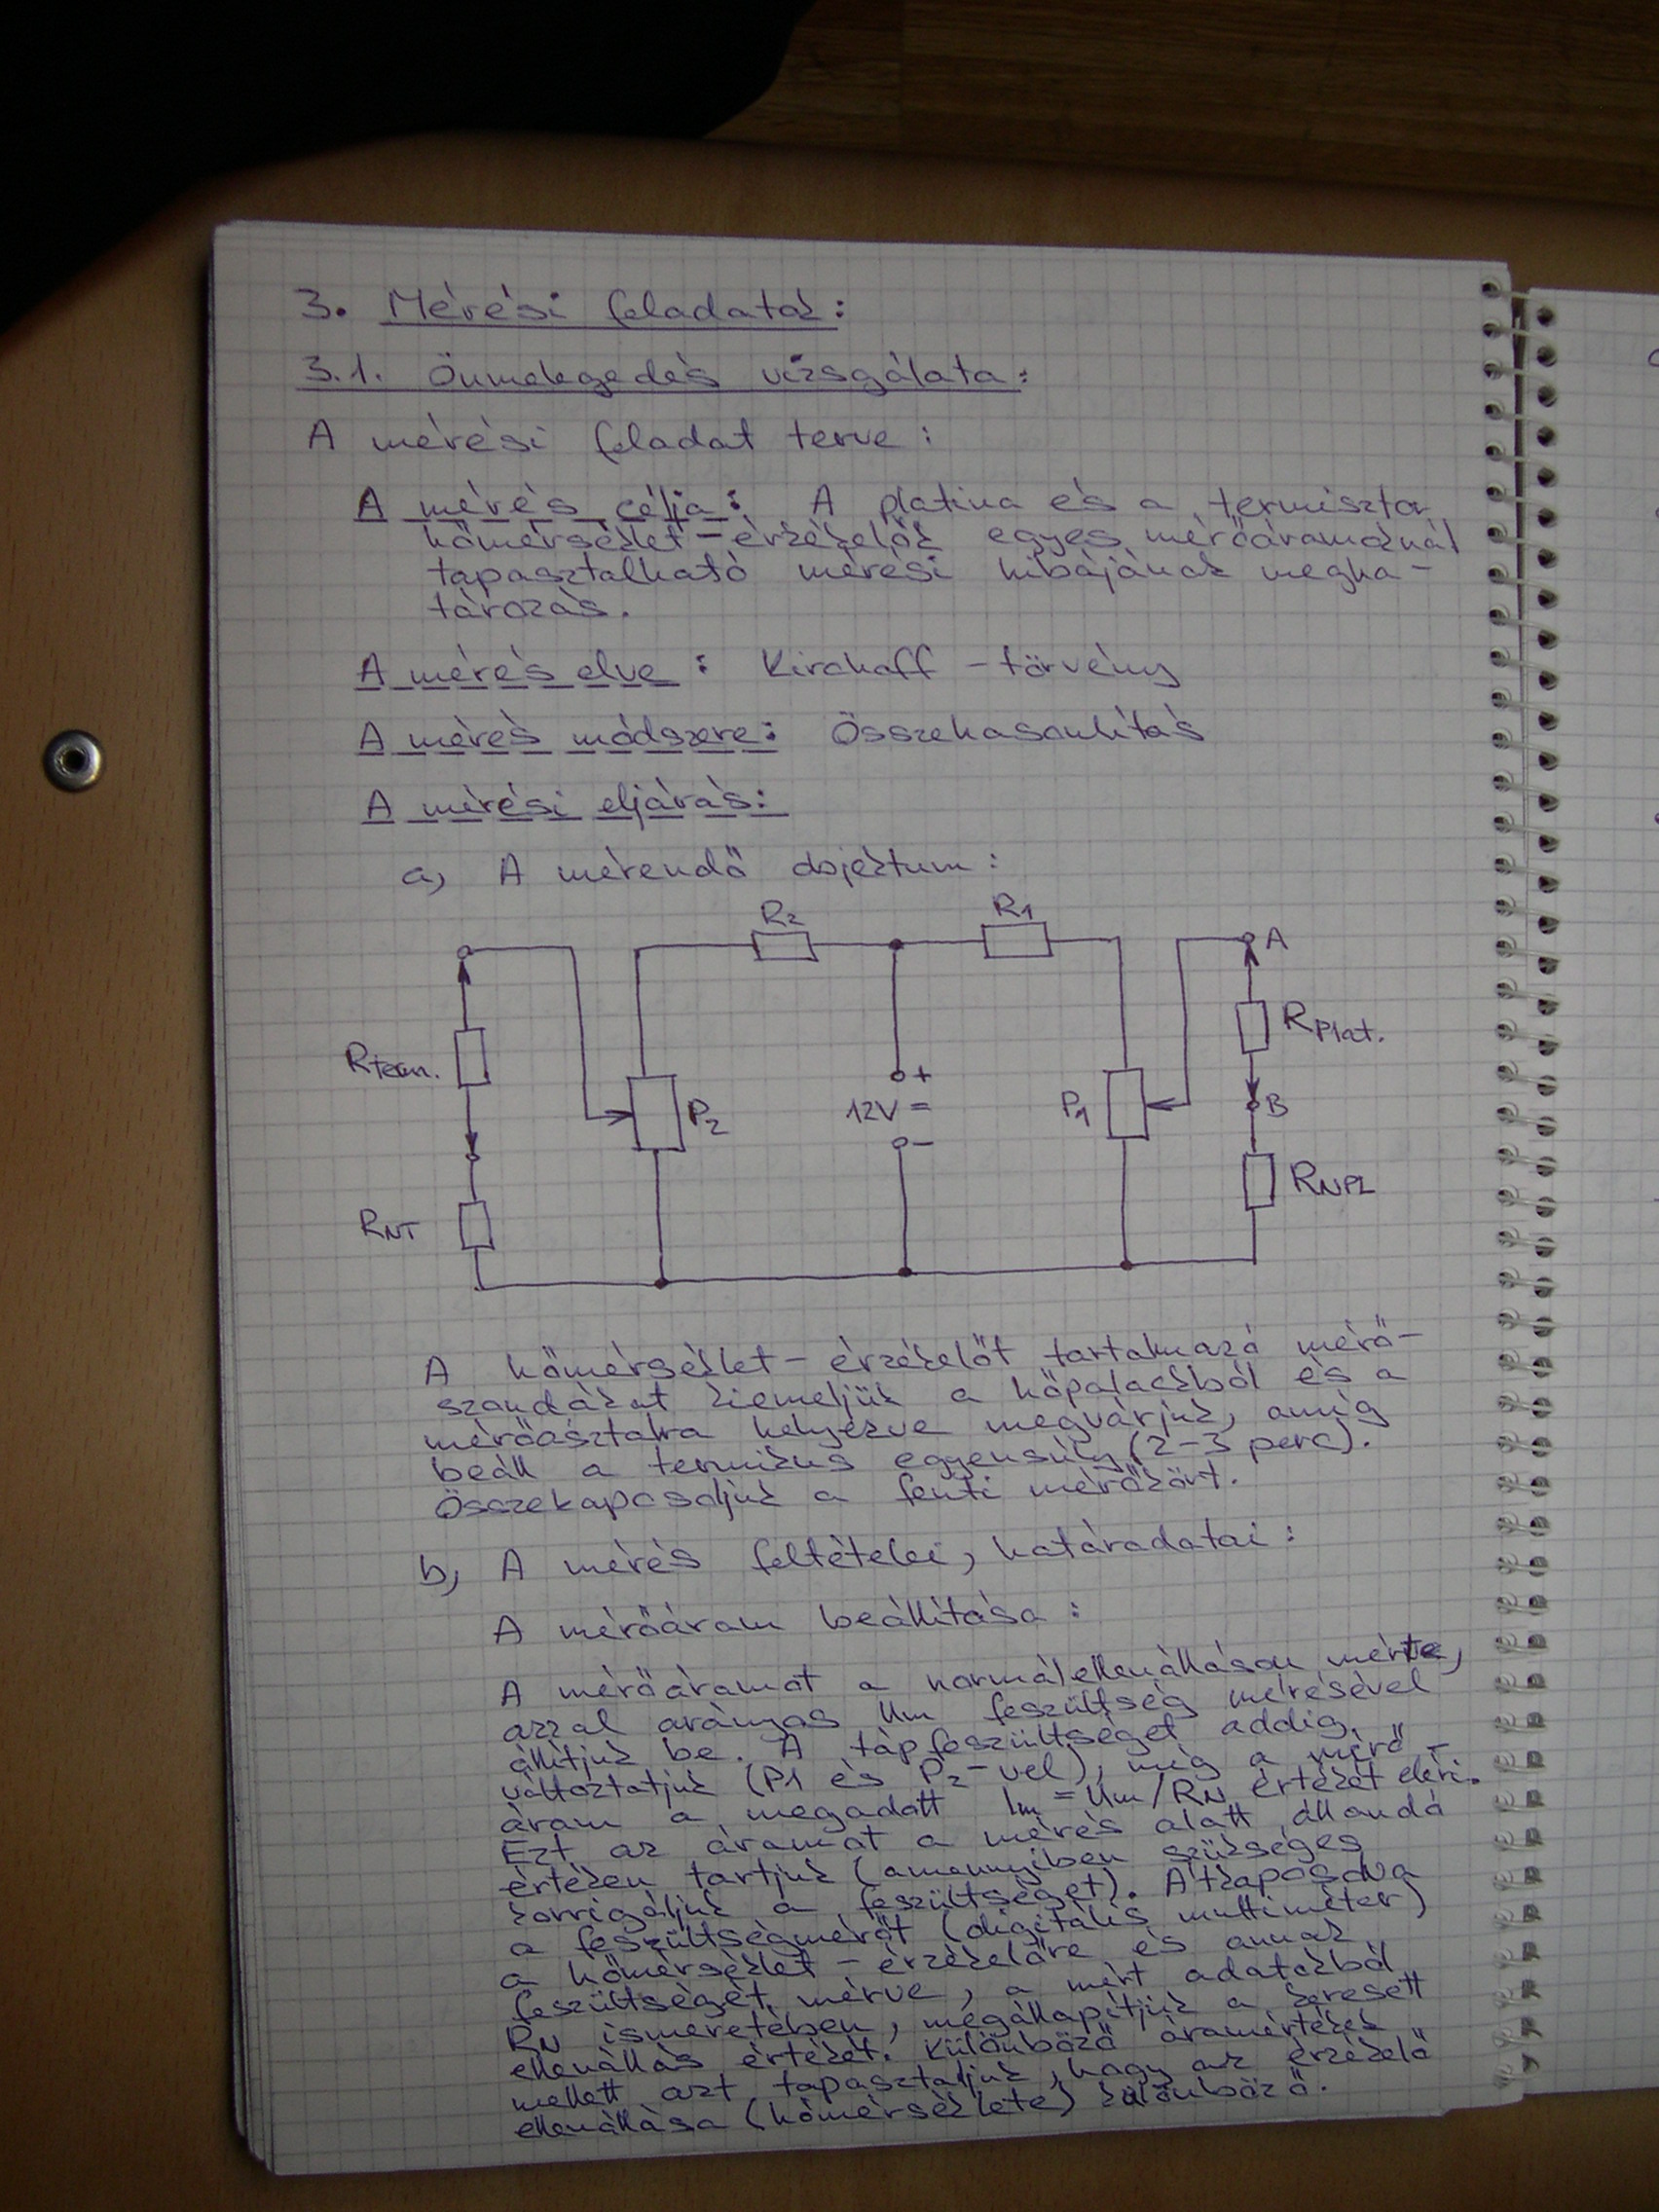 3. Mérési feladatok:
3.1. Önmelegedés vizsgálata:
A mérési feladat terve:
A mérés célja: A platina és a termisztor
hőmérséklet-érzékelők egyes mérőáramoknál
tapasztalható mérési hibájának megha-
tározás.
A mérés elve: Kirchoff -törvény
A mérés módszere: Összehasonlítás
A mérési eljárás:
a, A mérendő objektum:
R2 R1
A
Rterm. RPlat.
P2 12V = + - P1 B
RNT RNPL
A hőmérséklet-érzékelőt tartalmazó mérő-
szondákat kiemeljük a hőpalackból és a
mérőasztalra helyezve megvárjuk, amíg
beáll a termikus egyensúly (2-3 perc).
Összekapcsoljuk a fenti mérőkört.
b, A mérés feltételei, határadatai:
A mérőáram beállítása:
A mérőáramot a normálellenálláson mérve,
azzal arányos Um feszültség mérésével
állítjuk be. A tápfeszültséget addig
változtatjuk (P1 és P2-vel), míg a mérő-
áram a megadott Im = Um/RN értékét eléri.
Ezt az áramot a mérés alatt állandó
értéken tartjuk (amennyiben szükséges
korrigáljuk a feszültséget). Átkapcsolva
a feszültségmérőt (digitális multiméter)
a hőmérséklet-érzékelőre és annak
feszültségét mérve, a mért adatokból
RN ismeretében, megállapítjuk a keresett
ellenállás értékét. Különböző áramértékek
mellett azt tapasztaljuk, hogy az érzékelő
ellenállása (hőmérséklete) különböző.